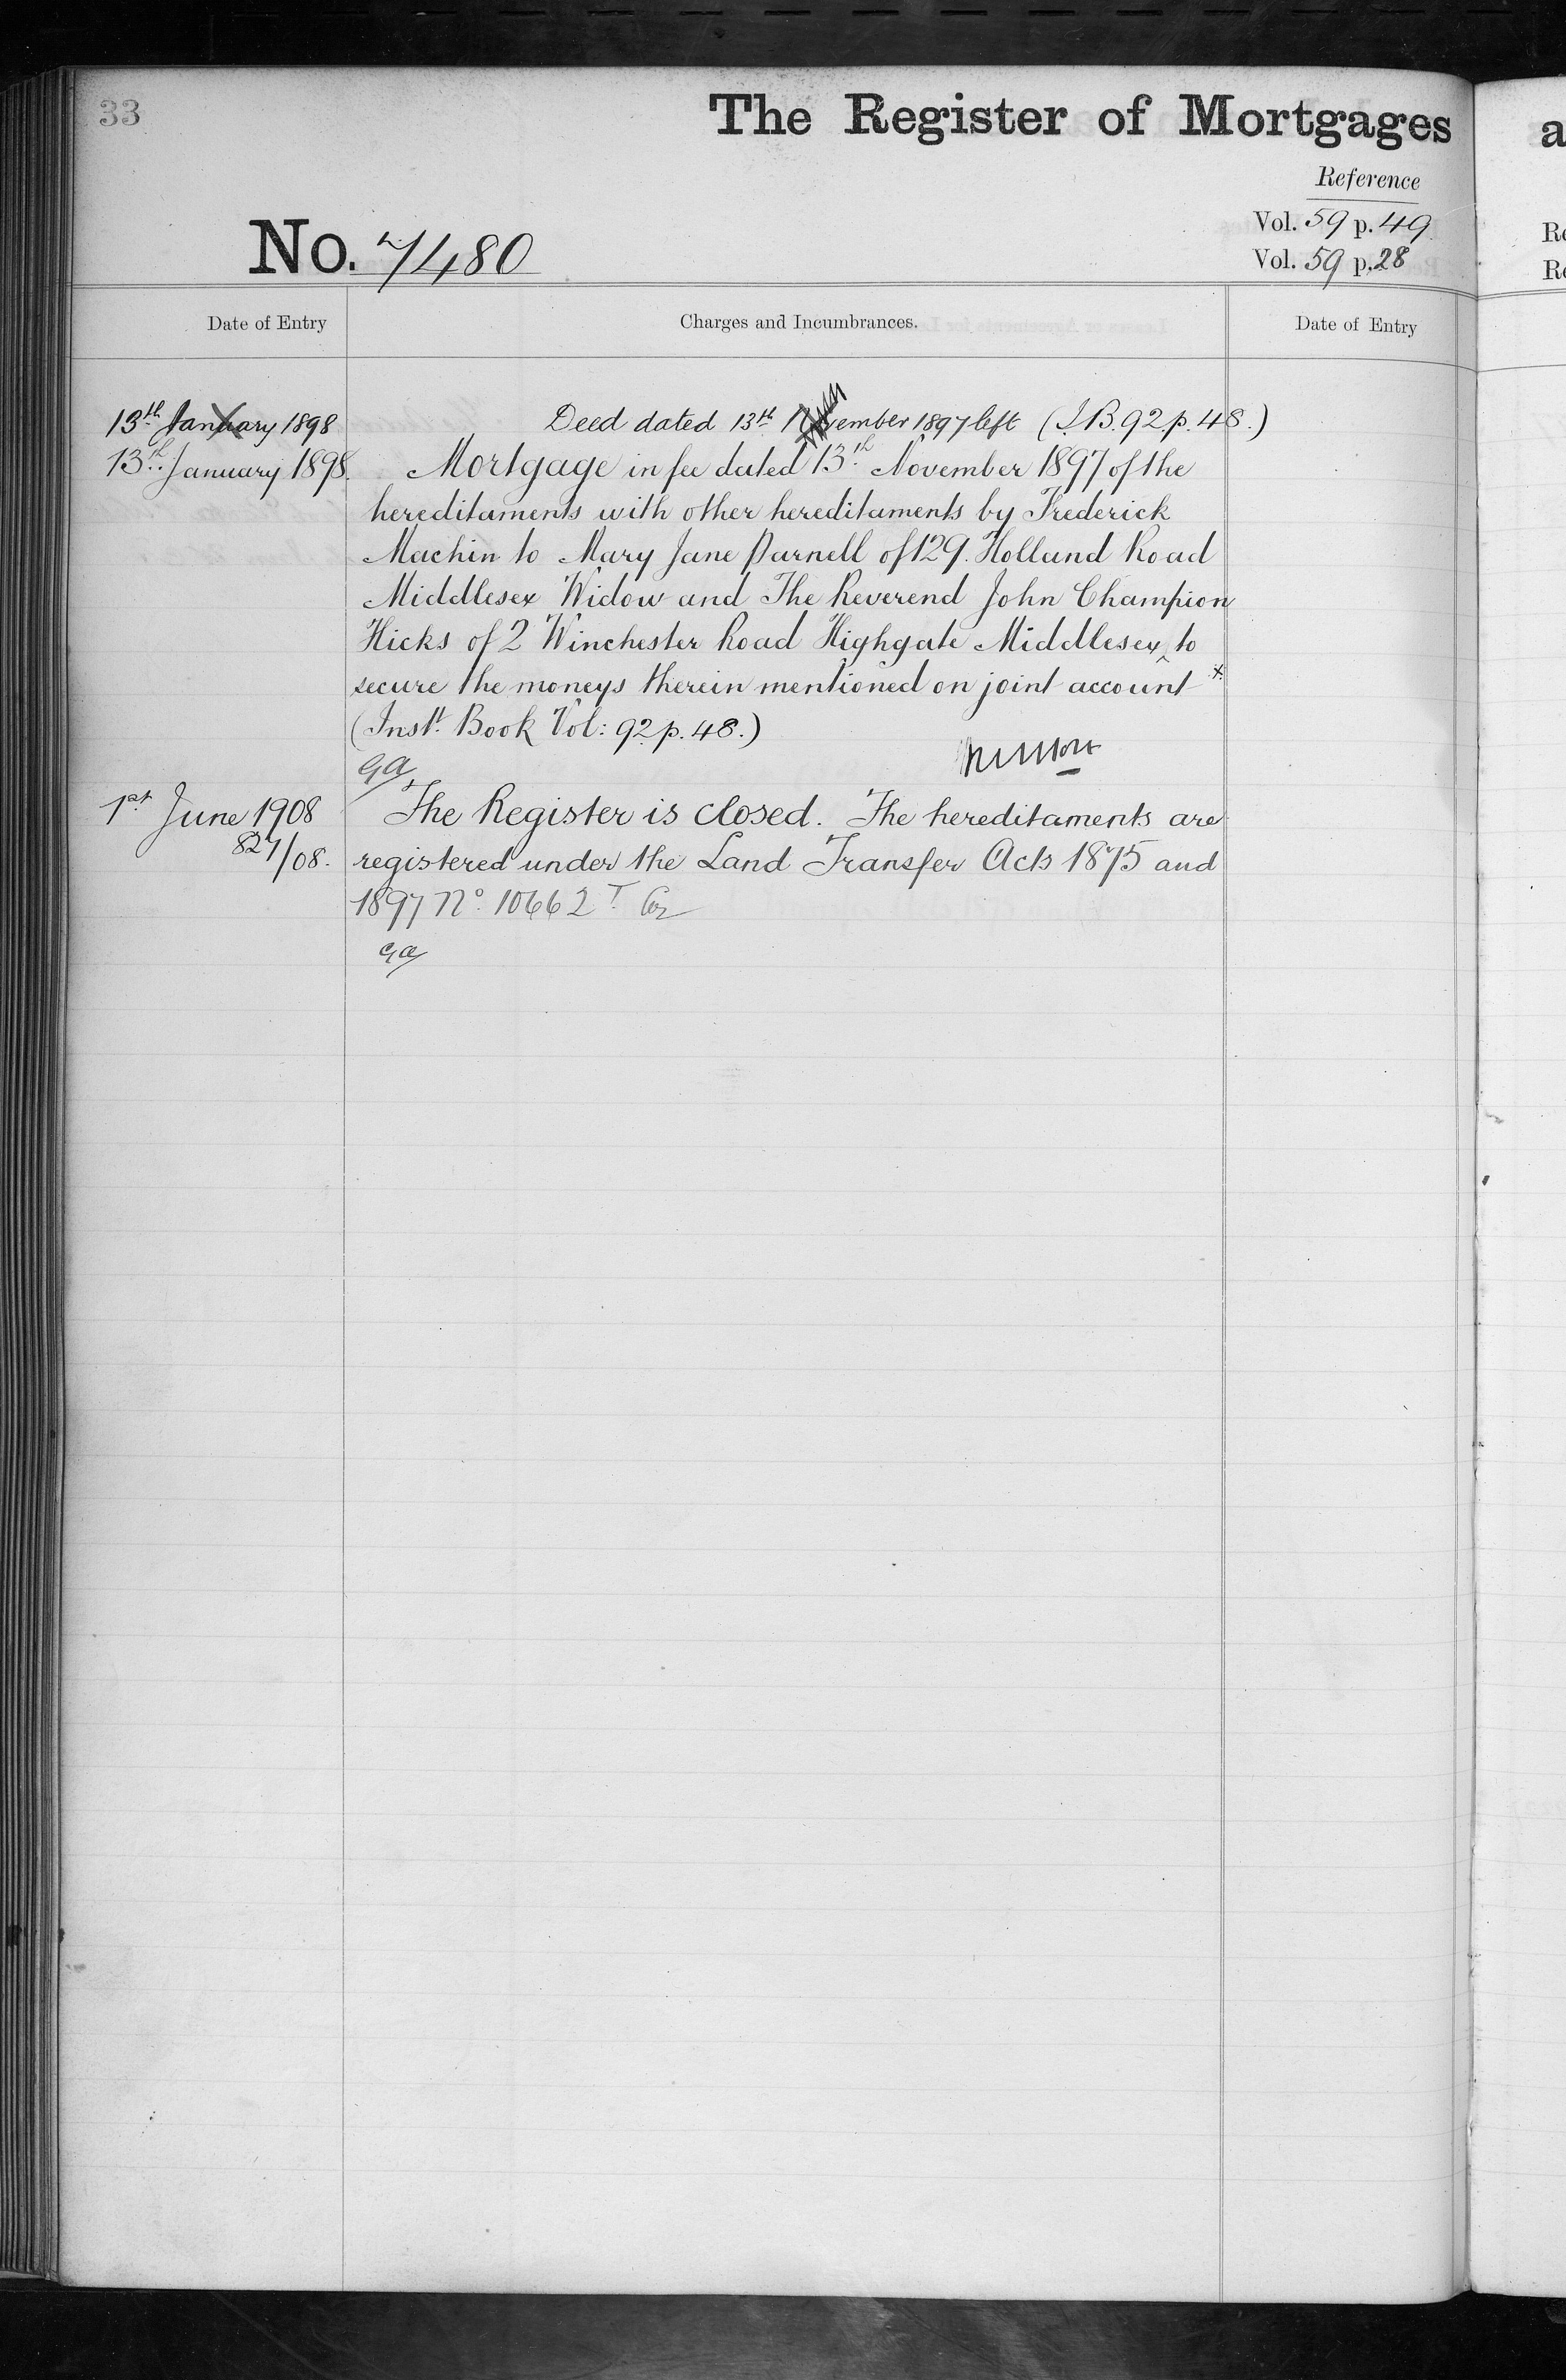 33
The Register of Mortgages
Reference
Vol. 59 p. 49
Vol. 59 p. 28
No. 7480
Date of Entry
Charges and Incumbrances.
Date of Entry
13th January 1898
Deed dated 13th November 1897 left (I.B. 92 p. 48.)
13th January 1898.
Mortgage in fee dated 13th November 1897 of the
hereditaments with other hereditaments by Frederick
Machin to Mary Jane Parnell of 129. Holland Road
Middlesex Widow and The Reverend John Champion
Hicks of 2 Winchester Road Highgate Middlesex ^ to
secure the moneys therein mentioned on joint account *
(Inst. Book Vol: 92 p. 48.)
GA
1st June 1908
The Register is closed. The hereditaments are
827/08.
registered under the Land Transfer Acts 1875 and
1897 No. 10662
GA
a
Re
Re